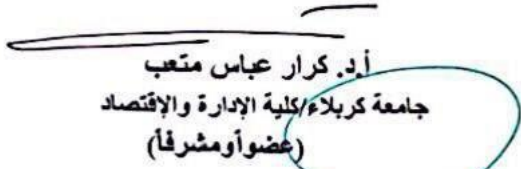 أ.د. كرار عباس متعب
جامعة كربلاء/كلية الإدارة والإقتصاد
(عضوأومشرفاً)